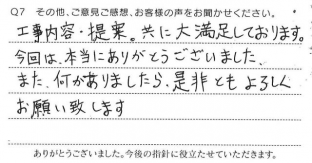 Q7 その他、ご意見ご感想、お客様の声をお聞かせください。
工事内容・提案。共に大満足しております。
今回は、本当にありがとうございました。
また、何かありましたら、是非ともよろしく
お願い致します
ありがとうございました。今後の指針に役立たせていただきます。